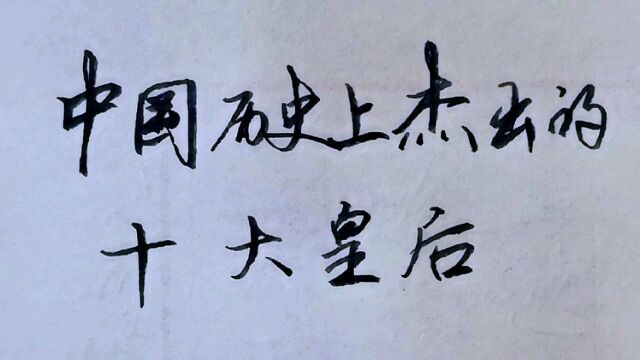 中国历史上杰出的
十大皇后